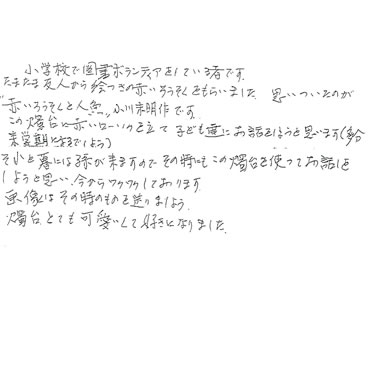 小学校で図書ボランティアをしている者です。
たまたま友人から絵つきの赤いろうそくをもらいました。思いついたのが
"赤いろうそくと人魚" 小川未明作です。
この燭台に赤いローソクを立て子ども達にお話しようと思います(多分
来学期になるでしょう)
それと暮には孫が来ますのでその時にもこの燭台を使ってお話しを
しようと思い、今からワクワクしております。
画像はその時のものを送りましょう。
燭台、とても可愛いくて好きになりました。